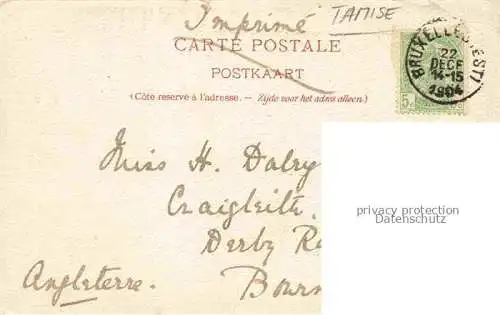 Imprimé TAMISE
CARTE POSTALE
POSTKAART
(Côte reservé à l'adresse. — Zijde voor het adres alleen.)
BRUXELLES (EST)
22
DECE
14-15
1904
5c
Miss H. Dalry
Craigleith,
Derby Ro
Angleterre. Bourn
privacy protection
Datenschutz